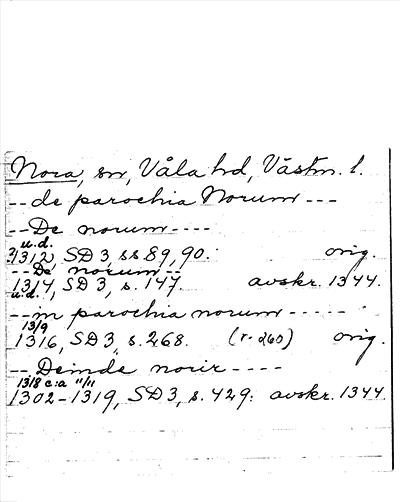 Nora, sn, Våla hd, Västm. l.
-- de parochia Norum ---
-- De norum ----
u.d.
?1312, SD 3, ss 89, 90. orig.
-- De norum --
1314, SD 3, s. 147. avskr. 1344.
u.d.
-- in parochia norum -----
13/9
1316, SD 3, s. 268. (r. 260) orig.
-- Deinde norir ----
1318 c:a 11/11
1302-1319, SD 3, s. 429. avskr. 1344.